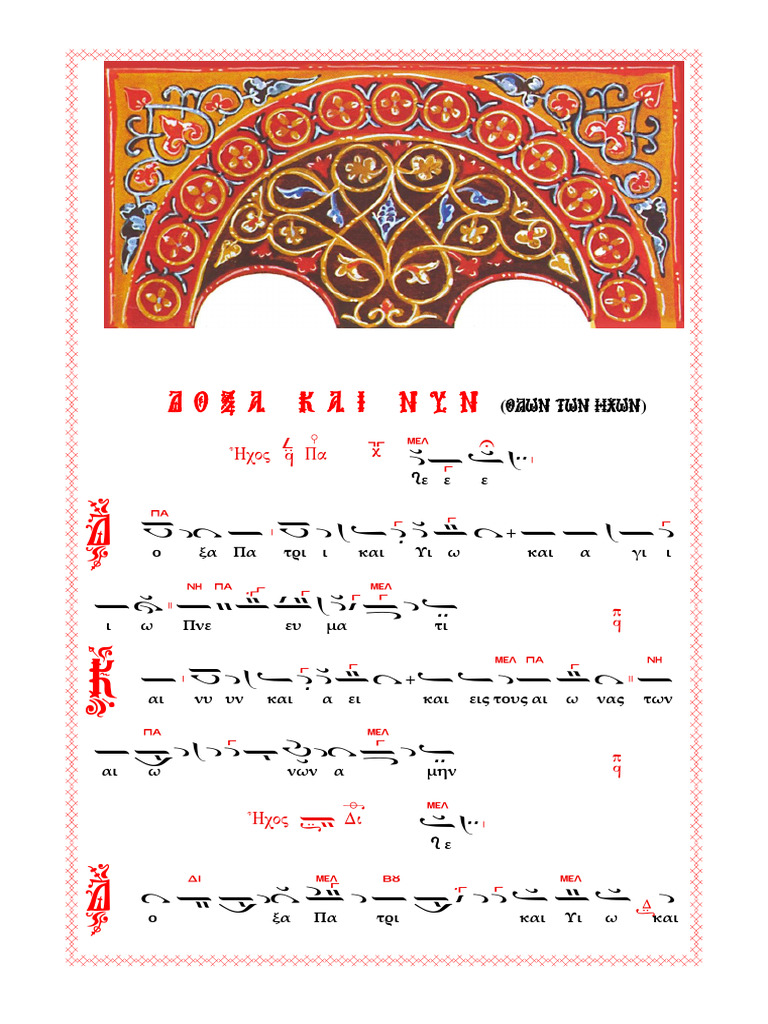 ΔΟΞΑ ΚΑΙ ΝΥΝ (ΟΛΩΝ ΤΩΝ ΗΧΩΝ)
Ἦχος Πα ΜΕΛ
λε ε ε
ΠΑ
Δ ο ξα Πα τρι ι και Υι ω και α γι ι
ΝΗ ΠΑ ΜΕΛ
ι ω Πνε ευ μα τι
ΜΕΛ ΠΑ ΝΗ
Κ αι νυ υν και α ει και εις τους αι ω νας των
ΠΑ ΜΕΛ
αι ω νων α μην
Ἦχος Δι ΜΕΛ
λε
ΔΙ ΜΕΛ ΒΟΥ ΜΕΛ
Δ ο ξα Πα τρι και Υι ω και